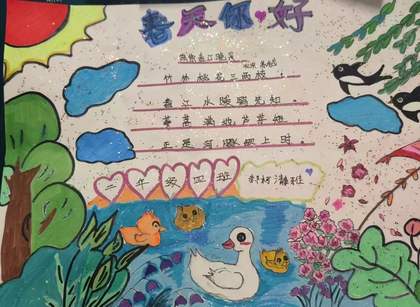 春天你好
惠崇春江晚景
北宋 苏轼
竹外桃花三两枝，
春江水暖鸭先知。
蒌蒿满地芦芽短，
正是河豚欲上时。
二年级四班